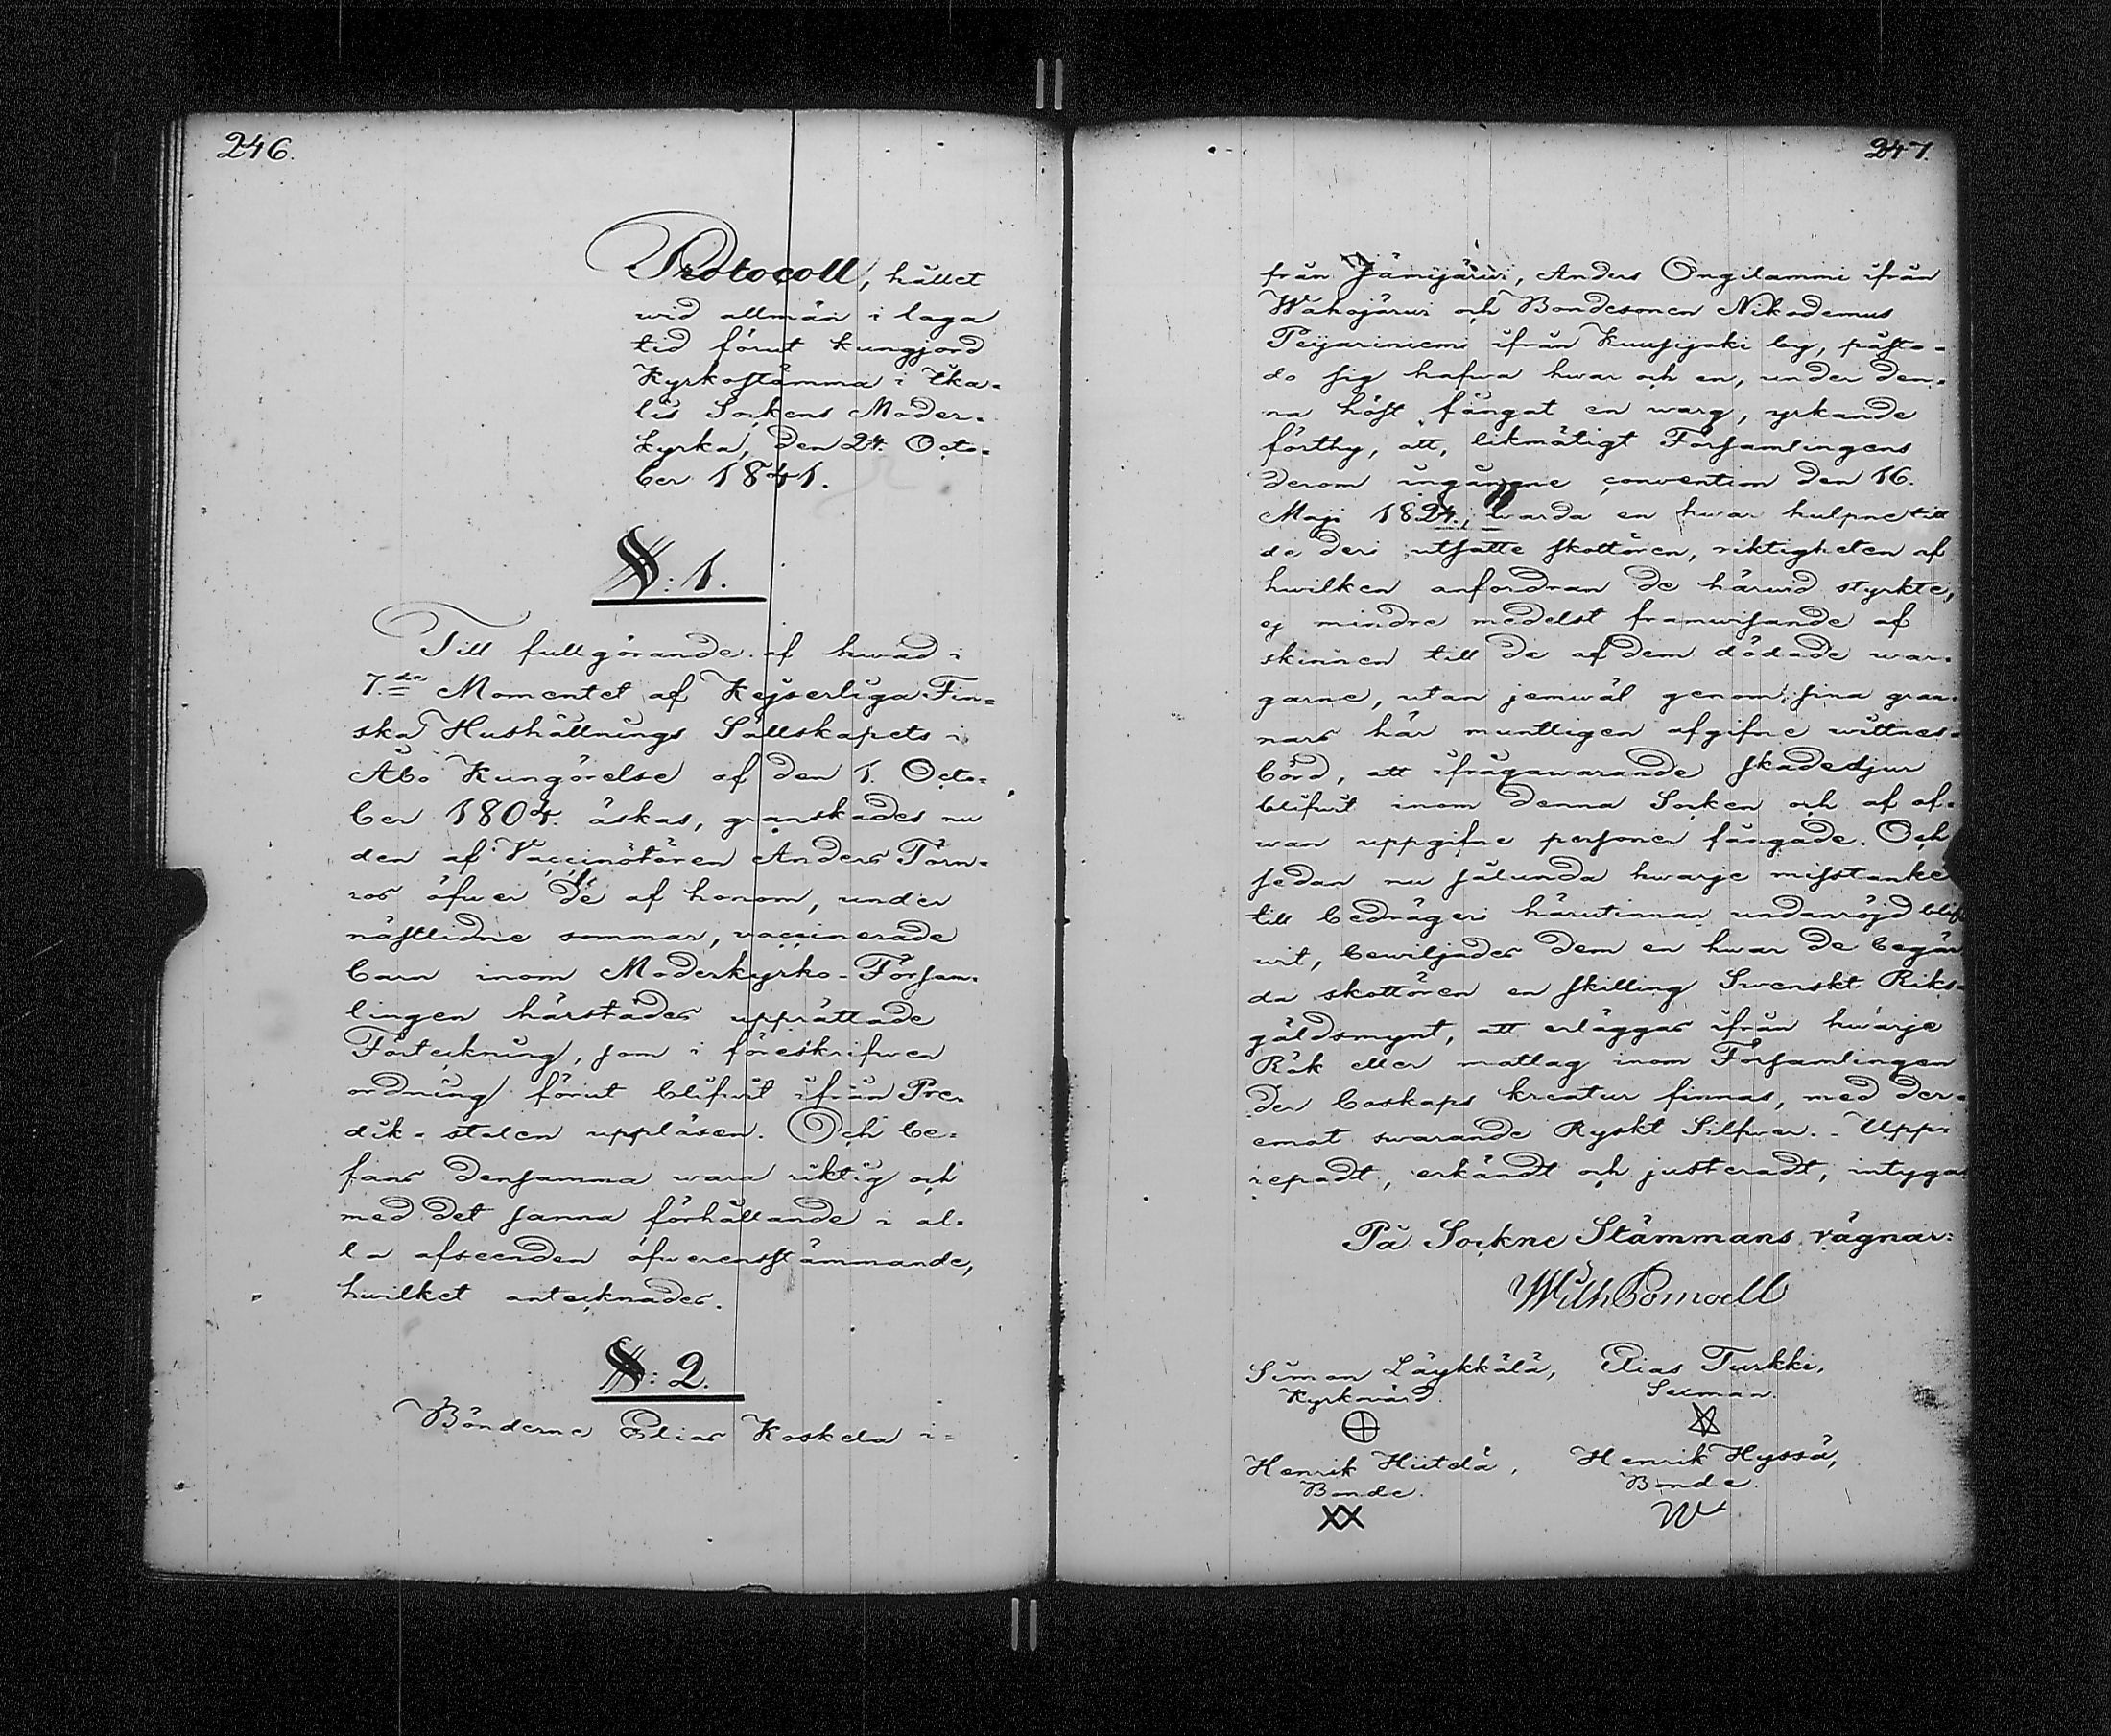 246.
Protocoll, hållet
wid allmän i laga
tid förut kungjord
Kyrkostämma i Ika-
lis Sockens Moder-
kyrka, den 24. Octo-
ber 1841.
§: 1.
Till fullgörande af hwad i
7.de Momentet af Kejserliga Fin-
ska Hushållnings Sällskapets i
Åbo Kungörelse af den 1. Octo-
ber 1804. äskas, granskades nu
den af Vaccinötören Anders Törn-
ros öfwer de af honom, under
nästlidne sommar, vaccinerade
barn inom Moderkyrko-Försam-
lingen härstädes upprättade
Förteckning, som i föreskrifwen
ordning förut blifwit ifrån Pre-
dik-stolen uppläsen. Och be-
fans densamma wara riktig och
med det sanna förhållande i al-
la afseenden öfwerensstämmande,
hwilket antecknades.
§: 2.
Bönderne Elias Koskela i-
247.
från Jämijärwi, Anders Ongilammi ifrån
Wahojärwi och Bondesonen Nikodemus
Peijariniemi ifrån Kuusijoki by, påsto-
do sig hafwa hwar och en, under den-
na höst fångat en warg, yrkande
förthy, att, likmätigt Församlingens
derom ingångne convention den 16.
Maji 1824., warda en hwar hulpne till
de deri utsatte skottören, riktigheten af
hwilken anfordran de härwid styrkte,
ej mindre medelst framwisande af
skinnen till de af dem dödade war-
garne, utan jemwäl genom sina gran-
nars här muntligen afgifne wittnes-
börd, att ifrågawarande skadedjur
blifwit inom denna Socken och af of-
wan uppgifne personer fångade. Och
sedan nu sålunda hwarje misstanke
till bedrägeri härutinnan undanröjd blif-
wit, bewiljades dem en hwar de begär
da skottören en skilling Swenskt Riks-
gäldsmynt, att erläggas ifrån hwarje
Rök eller matlag inom Församlingen
der boskaps kreatur finnas, med der-
emot swarande Ryskt Silfwer. - Upp-
repadt, erkändt och justeradt, intygas
På Sockne Stämmans vägnar:
Wilh Pomoell
Simon Läykkälä, Elias Turkki,
Kyrkwärd. Sexman.
Henrik Hiitelä, Henrik Hyssä,
Bonde. Bonde.
XX W